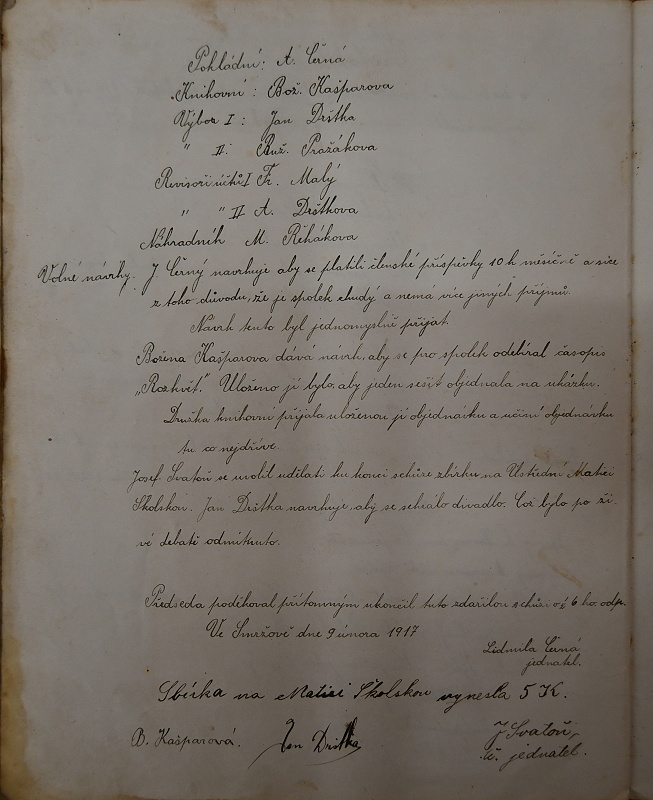 Pokládní: A. Černá
Knihovní: Bož. Kašparova
Výbor I: Jan Drštka
" II: Růž. Pražákova
Revisoři účtů I Fr. Malý
" " II A. Drštkova
Náhradník M. Řehákova
Volné návrhy. J. Černý navrhuje aby se platili členské příspěvky 10 h měsíčně a sice
z toho důvodu, že je spolek chudý a nemá více jiných příjmů.
Návrh tento byl jednomyslně přijat.
Božena Kašparova dává návrh, aby se pro spolek odebíral časopis
„Rozkvět." Uloženo jí bylo, aby jeden sešit objednala na ukázku.
Družka knihovní přijala uloženou jí objednávku a učiní objednávku
tu co nejdříve.
Josef Svatoň se uvolil udělati ku konci schůze sbírku na Ustřední Matici
Školskou. Jan Drštka navrhuje, aby se sehrálo divadlo. Což bylo po ži-
vé debatě odmítnuto.
Předseda poděkoval přítomným ukončil tuto zdařilou schůzi o 6 ho. odp.
Ve Smržově dne 9 února 1917
Lidmila Černá
jednatel.
Sbírka na Matici Školskou vynesla 5 K.
B. Kašparová. Jan Drštka J Svatoň,
jednatel.